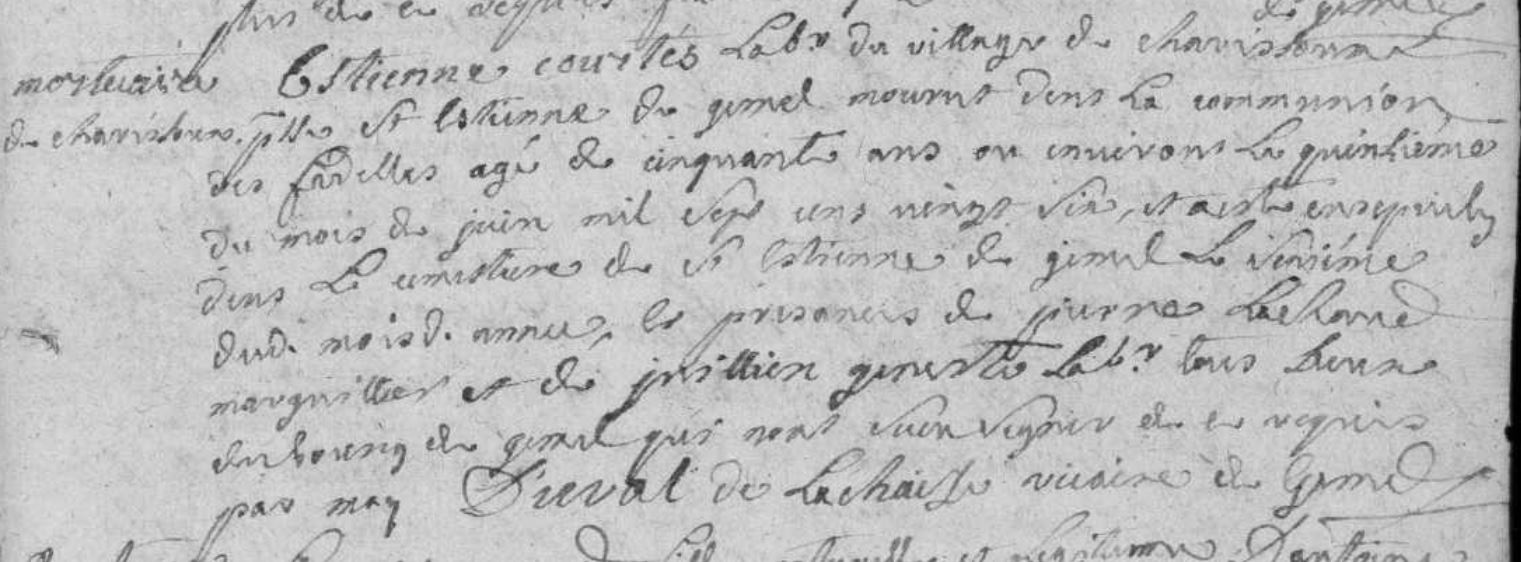 de gimel
mortuaire Estienne courtés Labr du village de charissoux
de charissoux. psse St Estienne de gimel mourut dens La communion
des fidelles agé de cinquante ans ou environt Le quinsiéme
du mois de juin mil sept cens vingt six, et a esté ensepvely
dens Le cimetiere de St Estienne de gimel Le seisiéme
dud. mois d. annee, es presances de pierre Lachaud
marguillier et de jullien geneste Labr tous deux
du bourg de gimel qui nont sceu signer de ce requis
par moy Duval de Lachaisse vicaire de Gimel